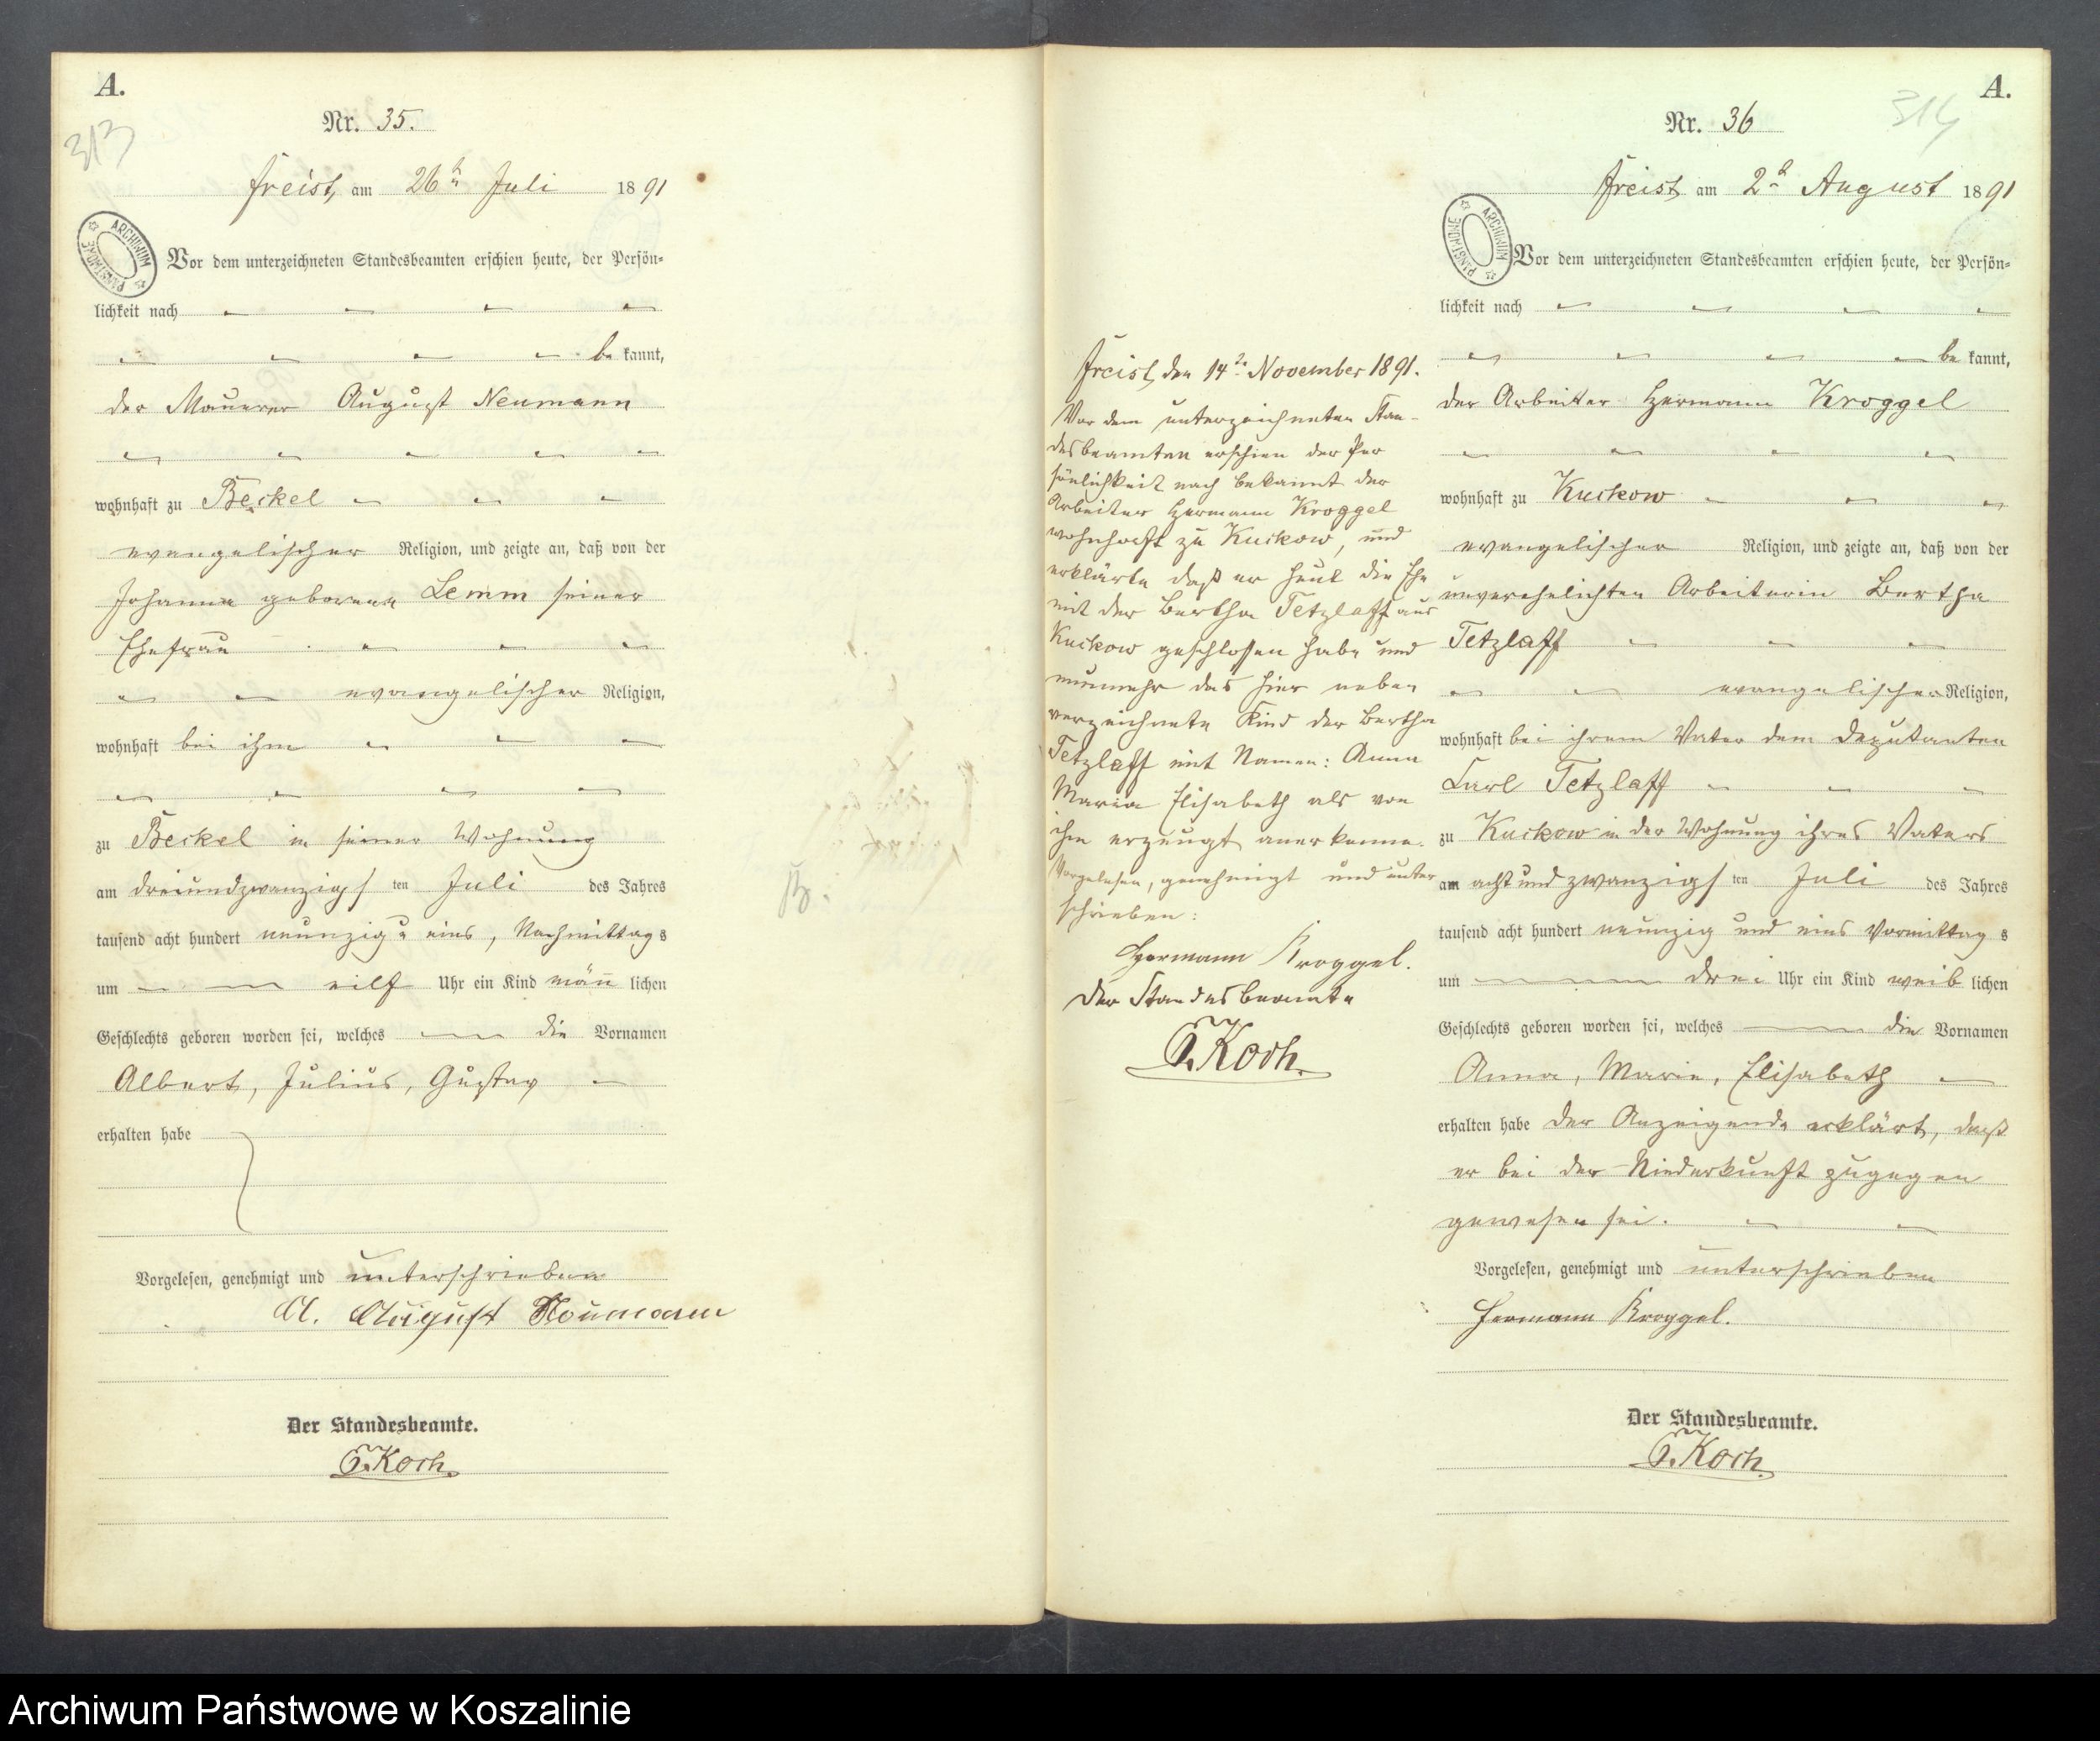 A.
313
Nr. 35.
Freist, am 26ten Juli 1891
ARCHIWUM PAŃSTWOWE
Vor dem unterzeichneten Standesbeamten erschien heute, der Persön-
lichkeit nach
be kannt,
der Maurer August Neumann
wohnhaft zu Beckel
evangelischer Religion, und zeigte an, daß von der
Johanna geborene Lemm seiner
Ehefrau
evangelischer Religion,
wohnhaft bei ihm
zu Beckel in seiner Wohnung
am dreiundzwanzigs ten Juli des Jahres
tausend acht hundert neunzig u eins, Nachmittag s
um eilf Uhr ein Kind männ lichen
Geschlechts geboren worden sei, welches die Vornamen
Albert, Julius, Gustav
erhalten habe
Vorgelesen, genehmigt und unterschrieben
A. August Neumann
Der Standesbeamte.
Koch.
Freist, den 14ten November 1891.
Vor dem unterzeichneten Stan-
desbeamten erschien der Per
sönlichkeit nach bekannt der
Arbeiter Hermann Kroggel
wohnhaft zu Kuckow, und
erklärte daß er heut die Ehe
mit der Bertha Tetzlaff aus
Kuckow geschlossen habe und
nunmehr das hier neben
verzeichnete Kind der Bertha
Tetzlaff mit Namen: Anna
Maria Elisabeth als von
ihm erzeugt anerkenne.
Vorgelesen, genehmigt und unter
schrieben:
Hermann Kroggel.
Der Standesbeamte
Koch.
A.
314
Nr. 36
Freist, am 2ten August 1891
ARCHIWUM PAŃSTWOWE
Vor dem unterzeichneten Standesbeamten erschien heute, der Persön-
lichkeit nach
be kannt,
der Arbeiter Hermann Kroggel
wohnhaft zu Kuckow
evangelischer Religion, und zeigte an, daß von der
unverehelichten Arbeiterin Bertha
Tetzlaff
evangelischer Religion,
wohnhaft bei ihrem Vater dem Deputanten
Carl Tetzlaff
zu Kuckow in der Wohnung ihres Vaters
am acht und zwanzigs ten Juli des Jahres
tausend acht hundert neunzig und eins Vormittag s
um drei Uhr ein Kind weib lichen
Geschlechts geboren worden sei, welches die Vornamen
Anna, Marie, Elisabeth
erhalten habe der Anzeigende erklärt, daß
er bei der Niederkunft zugegen
gewesen sei.
Vorgelesen, genehmigt und unterschrieben
Hermann Kroggel.
Der Standesbeamte.
Koch.
Archiwum Państwowe w Koszalinie